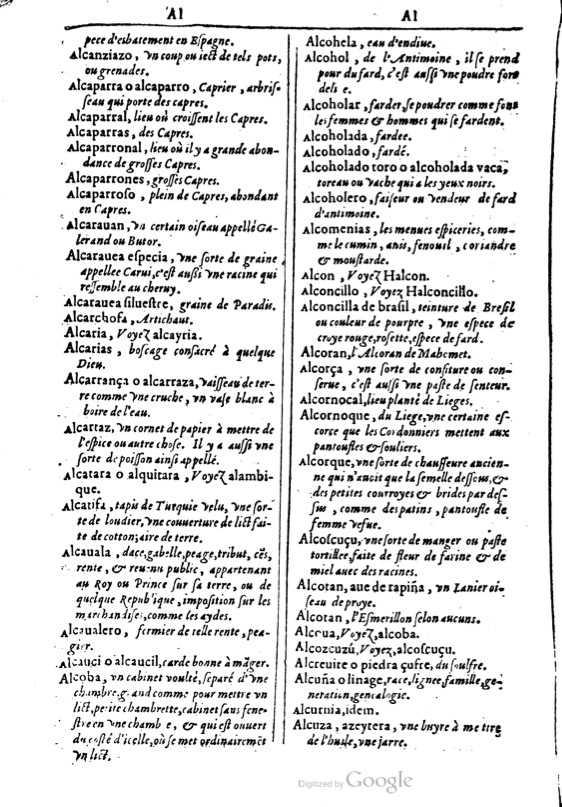 Al
pece d'esbatement en Espagne.
Alcanziazo, vn coup ou iect de tels pots,
ou grenades.
Alcaparra o alcaparro, Caprier, arbris-
seau qui porte des capres.
Alcaparral, lieu où croissent les Capres.
Alcaparras, des Capres.
Alcaparronal, lieu où il y a grande abon-
dance de grosses Capres.
Alcaparrones, grosses Capres.
Alcaparroso, plein de Capres, abondant
en Capres.
Alcarauan, vn certain oiseau appellé Ga-
lerand ou Butor.
Alcarauea especia, vne sorte de graine
appellee Carui, c'est aussi vne racine qui
ressemble au cheruy.
Alcarauea siluestre, graine de Paradis.
Alcarchofa, Artichaut.
Alcaria, Voyez alcayria.
Alcarias, boscage consacré à quelque
Dieu.
Alcarrança o alcarraza, vaisseau de ter-
re comme vne cruche, vn vase blanc à
boire de l'eau.
Alcartaz, vn cornet de papier à mettre de
l'espice ou autre chose. Il y a aussi vne
sorte de poisson ainsi appellé.
Alcatara o alquitara, Voyez alambi-
que.
Alcatifa, tapis de Turquie velu, vne sor-
te de loudier, vne couuerture de lict fai-
te de cotton; aire de terre.
Alcauala, dace, gabelle, peage, tribut, cēs,
rente, & reuenu public, appartenant
au Roy ou Prince sur sa terre, ou de
quelque Republique, imposition sur les
marchandises, comme les aydes.
Alcaualero, fermier de telle rente, pea-
gier.
Alcauci o alcaucil, carde bonne à māger.
Alcoba, vn cabinet voulté, separé d'vne
chambre, grand comme pour mettre vn
lict, petite chambrette, cabinet sans fene-
stre en vne chambre, & qui est ouuert
du costé d'icelle, où se met ordinairemēt
vn lict.
Al
Alcohela, eau d'endiue.
Alcohol, de l'Antimoine, il se prend
pour du fard, c'est aussi vne poudre fort
Alcoholar, farder, se poudrer comme font
les femmes & hommes qui se fardent.
Alcoholada, fardee.
Alcoholado, fardé.
Alcoholado toro o alcoholada vaca,
toreau ou vache qui a les yeux noirs.
Alcoholero, faiseur ou vendeur de fard
d'antimoine.
Alcomenias, les menues espiceries, com-
me le cumin, anis, fenouil, coriandre
& moustarde.
Alcon, Voyez Halcon.
Alconcillo, Voyez Halconcillo.
Alconcilla de brasil, teinture de Bresil
ou couleur de pourpre, vne espece de
croye rouge, rosette, espece de fard.
Alcoran, l'Alcoran de Mahomet.
Alcorça, vne sorte de confiture ou con-
serue, c'est aussi vne paste de senteur.
Alcornocal, lieu planté de Lieges.
Alcornoque, du Liege, vne certaine es-
corce que les Cordonniers mettent aux
pantoufles & souliers.
Alcorque, vne sorte de chauffeure ancien-
ne qui n'auoit que la semelle dessous, &
des petites courroyes & brides par des-
sus, comme des patins, pantoufle de
femme vefue.
Alcoscuçu, vne sorte de manger ou paste
tortillee, faite de fleur de farine & de
miel auec des racines.
Alcotan, aue de rapiña, vn Lanier oi-
seau de proye.
Alcotan, l'Esmerillon selon aucuns.
Alcoua, Voyez, alcoba.
Alcozcuzú, Voyez, alcoscuçu.
Alcreuite o piedra çufre, du soulfre.
Alcuña o linage, race, lignee, famille, ge-
neration, genealogie.
Alcurnia, idem.
Alcuza, azeytera, vne buyre à mettre
de l'huile, vne jarre.
Digitized by Google